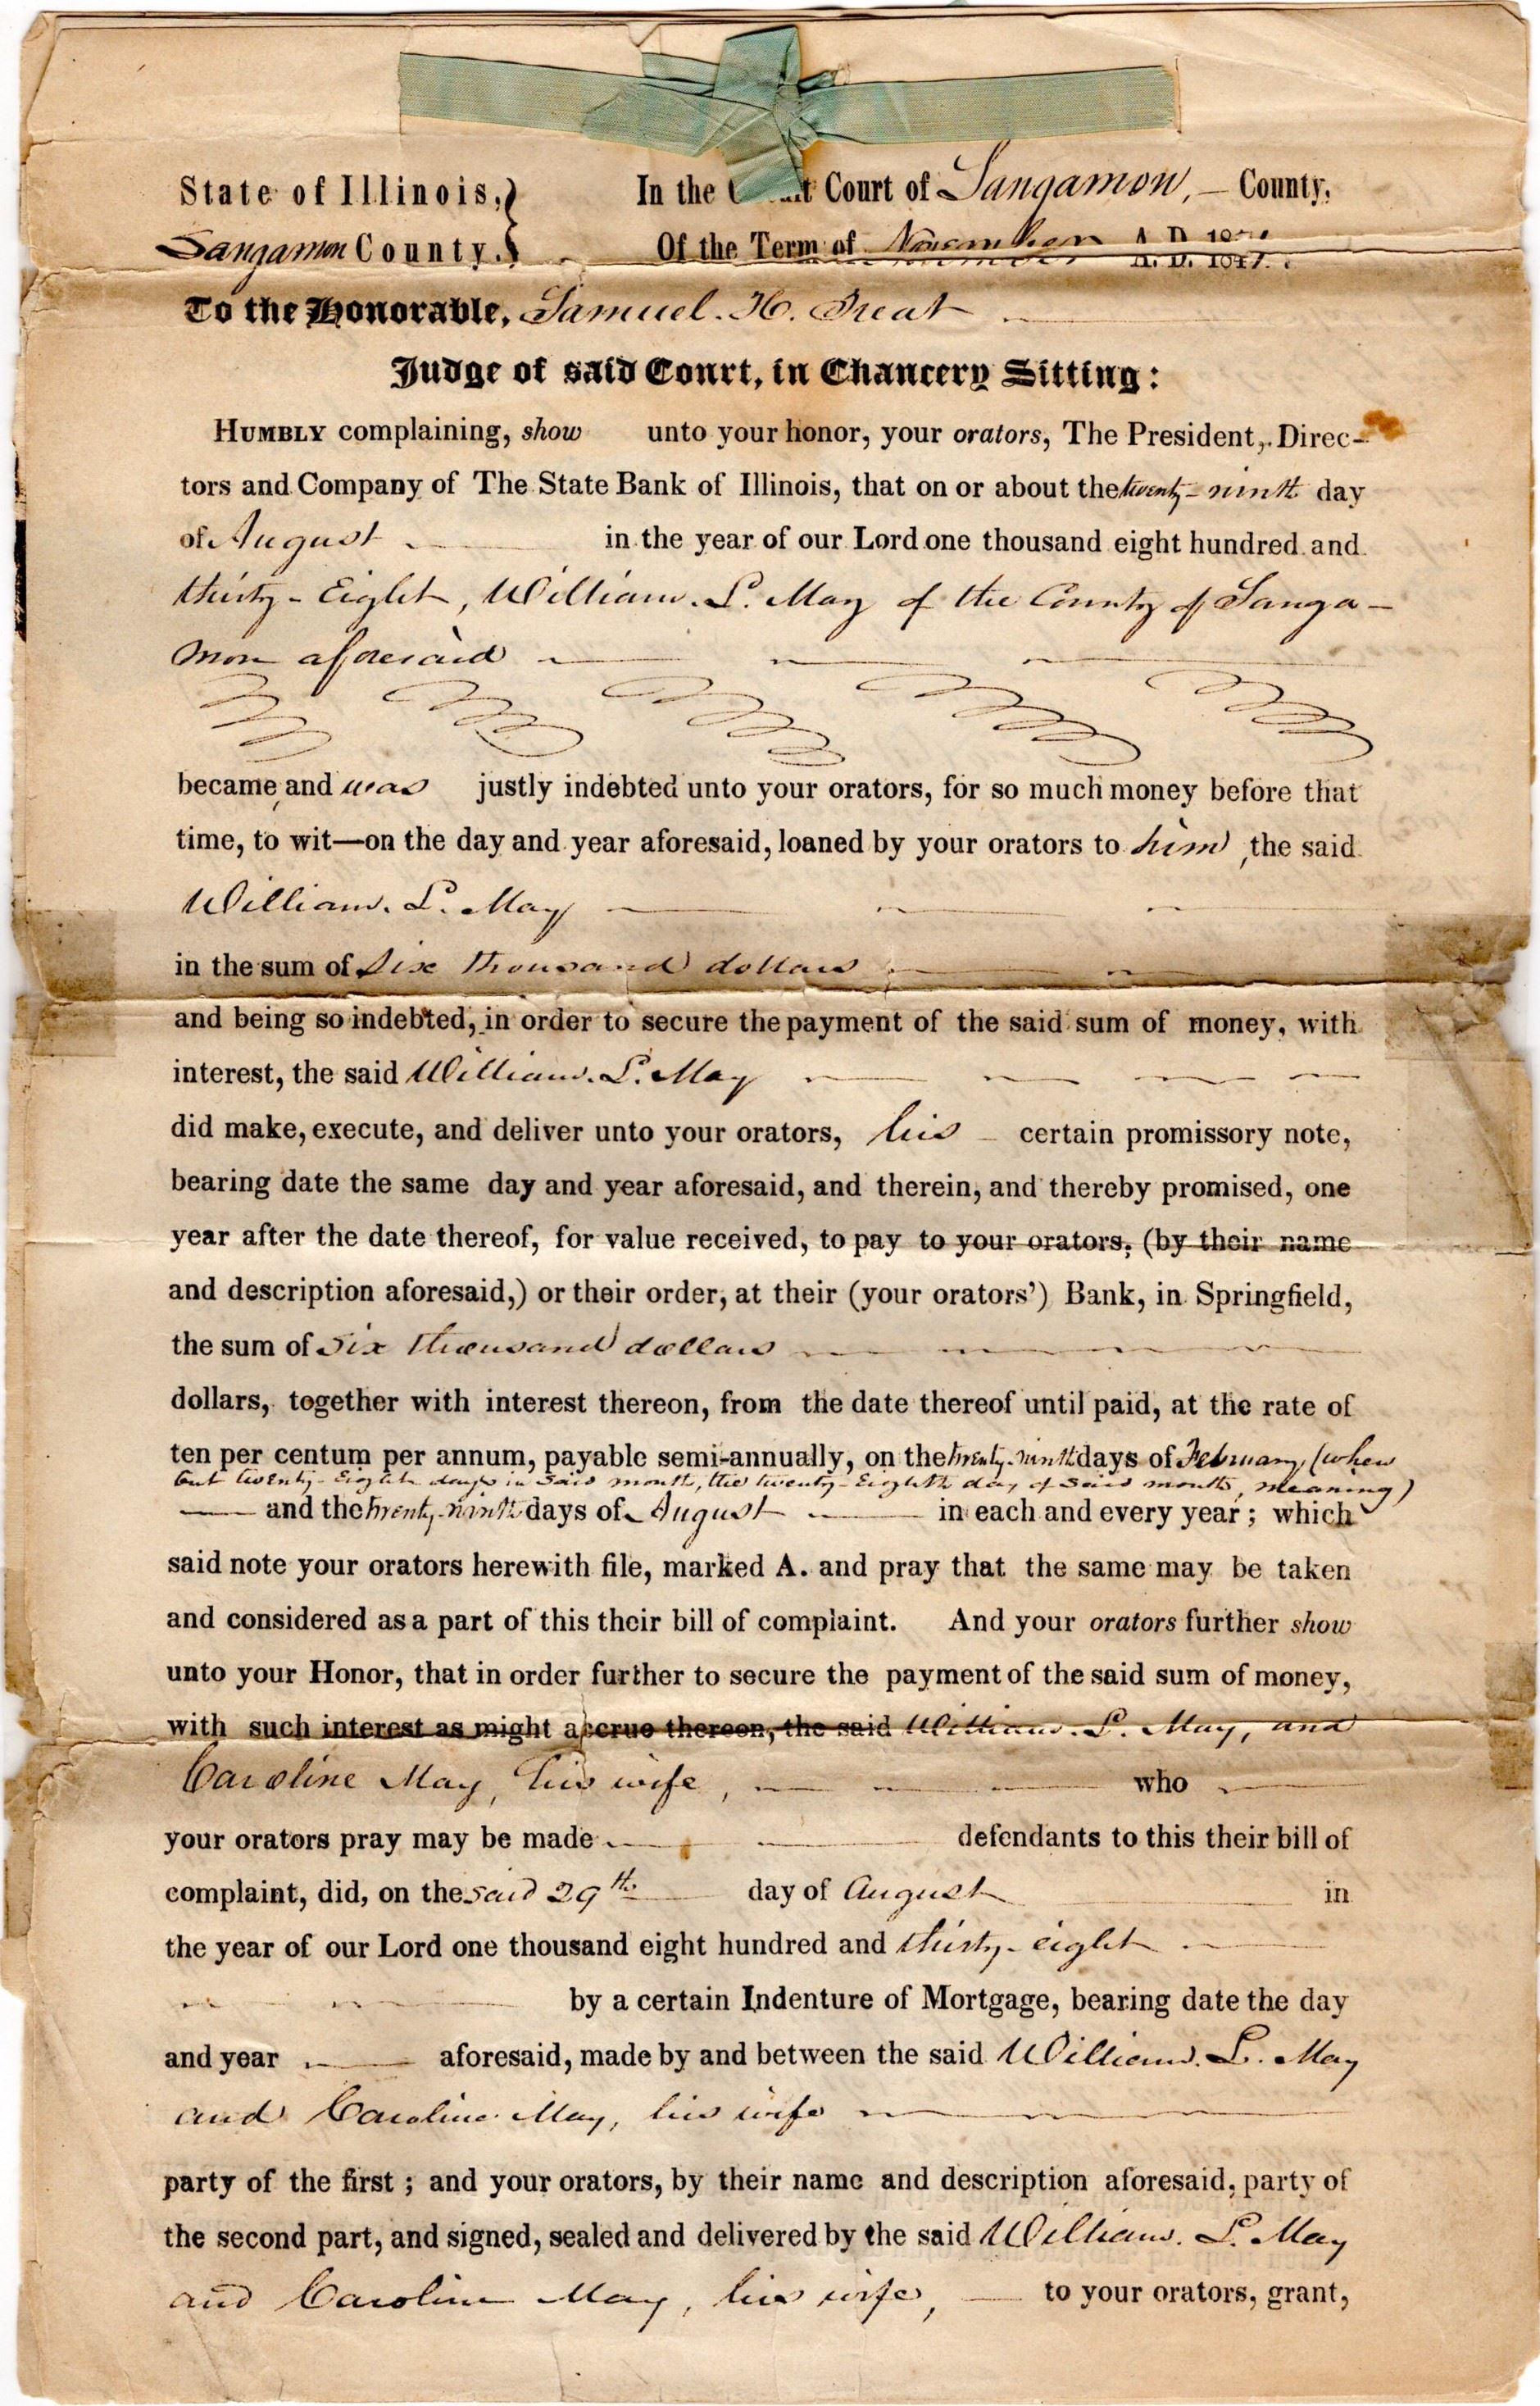 State of Illinois,} In the t Court of Sangamon, — County,
Sangamon County. Of the Term of November A. D. 184
To the Honorable, Samuel. H. Treat
Judge of said Court, in Chancery Sitting:
HUMBLY complaining, show unto your honor, your orators, The President, Direc-
tors and Company of The State Bank of Illinois, that on or about the twenty-ninth day
of August in the year of our Lord one thousand eight hundred and
thirty-Eight, William. L. May of the County of Sanga-
mon aforesaid
became and was justly indebted unto your orators, for so much money before that
time, to wit—on the day and year aforesaid, loaned by your orators to him, the said
William. L. May
in the sum of Six thousand dollars
and being so indebted, in order to secure the payment of the said sum of money, with
interest, the said William. L. May
did make, execute, and deliver unto your orators, his certain promissory note,
bearing date the same day and year aforesaid, and therein, and thereby promised, one
year after the date thereof, for value received, to pay to your orators, (by their name
and description aforesaid,) or their order, at their (your orators') Bank, in Springfield,
the sum of Six thousand dollars
dollars, together with interest thereon, from the date thereof until paid, at the rate of
ten per centum per annum, payable semi-annually, on the twenty-ninth days of February, (when
but twenty-Eight days in said month, the twenty-Eighth day of said month, meaning)
— and the twenty-ninth days of August in each and every year; which
said note your orators herewith file, marked A. and pray that the same may be taken
and considered as a part of this their bill of complaint. And your orators further show
unto your Honor, that in order further to secure the payment of the said sum of money,
with such interest as might accrue thereon, the said William. L. May, and
Caroline May, his wife, who
your orators pray may be made defendants to this their bill of
complaint, did, on the said 29th day of August in
the year of our Lord one thousand eight hundred and thirty-eight
by a certain Indenture of Mortgage, bearing date the day
and year aforesaid, made by and between the said William. L. May
and Caroline May, his wife
party of the first; and your orators, by their name and description aforesaid, party of
the second part, and signed, sealed and delivered by the said William. L. May
and Caroline May, his wife, — to your orators, grant,